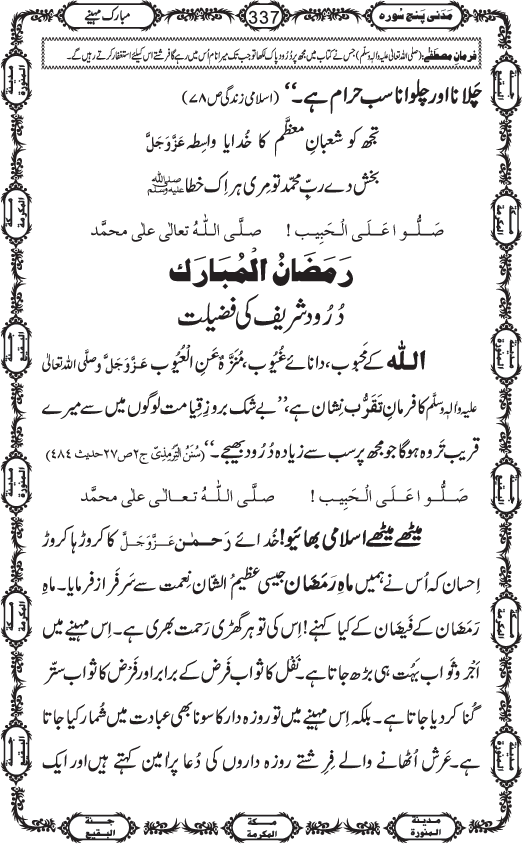 مَدَنی پنج سورہ 337 مبارک مہینے
فرمانِ مصطفٰے: (صلی اللہ تعالیٰ علیہ والہٖ وسلّم) جس نے کتاب میں مجھ پر دُرُود پاک لکھا تو جب تک میرا نام اُس میں رہے گا فرشتے اس کیلئے استغفار کرتے رہیں گے۔
چَلانا اور چلوانا سب حرام ہے۔‘‘ (اسلامی زندگی ص۷۸)
تجھ کو شعبانِ معظَّم کا خُدایا واسِطہ عَزَّوَجَلَّ
بخش دے ربِّ محمد تو مِری ہر اِک خطا ﷺ
صَلُّوا عَلَی الْحَبِیب! صلَّی اللّٰہُ تعالٰی علٰی محمَّد
رَمَضَانُ الْمُبَارَک
دُرُود شریف کی فضیلت
اللّٰہ کے مَحبُوب، دانائے غُیُوب، مُنَزَّہٌ عَنِ الْعُیُوب عَزَّوَجَلَّ وصلَّی اللہ تعالیٰ
علیہ والہٖ وسلَّم کا فرمانِ تَقَرُّب نِشان ہے، ’’بے شک بروزِ قِیامت لوگوں میں سے میرے
قریب تَر وہ ہوگا جو مجھ پر سب سے زیادہ دُرُود بھیجے۔‘‘ (سُنَنُ التِّرْمِذِیّ ج۲ ص۲۷ حدیث ۴۸۴)
صَلُّوا عَلَی الْحَبِیب! صلَّی اللّٰہُ تعالٰی علٰی محمَّد
میٹھے میٹھے اسلامی بھائیو! خُدائے رَحمٰن عَزَّوَجَلَّ کا کروڑ ہا کروڑ
اِحسان کہ اُس نے ہمیں ماہِ رَمَضَان جیسی عظیمُ الشّان نِعمت سے سَرفَراز فرمایا۔ ماہِ
رَمَضَان کے فَیضان کے کیا کہنے! اِس کی تو ہر گھڑی رَحمت بھری ہے۔ اِس مہینے میں
اَجْر و ثواب بَہُت ہی بڑھ جاتا ہے۔ نَفْل کا ثواب فَرض کے برابر اور فَرْض کا ثواب ستّر
گُنا کر دیا جاتا ہے۔ بلکہ اِس مہینے میں تو روزہ دار کا سونا بھی عبادت میں شُمار کیا جاتا
ہے۔ عَرش اُٹھانے والے فِرِشتے روزہ داروں کی دُعا پر امین کہتے ہیں اور ایک
مدينة المنورة
جنة البقيع
مكة المكرمة
مدينة المنورة
جنة البقيع
مكة المكرمة
مدينة المنورة
جنة البقيع
مكة المكرمة
مدينة المنورة
جنة البقيع
مكة المكرمة
مدينة المنورة
جنة البقيع
مكة المكرمة
مدينة المنورة